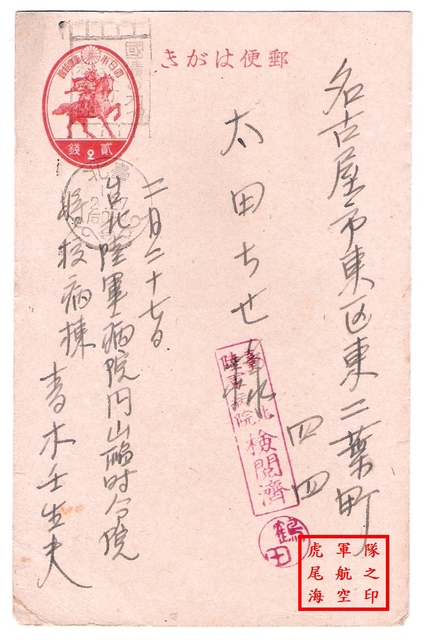 郵便はがき
大日本帝國郵便
貳錢
2
臺北
名古屋市東区東二葉町
四四
太田ちせ様
臺北
陸軍病院
檢閲濟
鶴田
二月二十七日
台北陸軍病院円山臨时分院
將校病棟
青木壬生夫
虎尾海
軍航空
隊之印